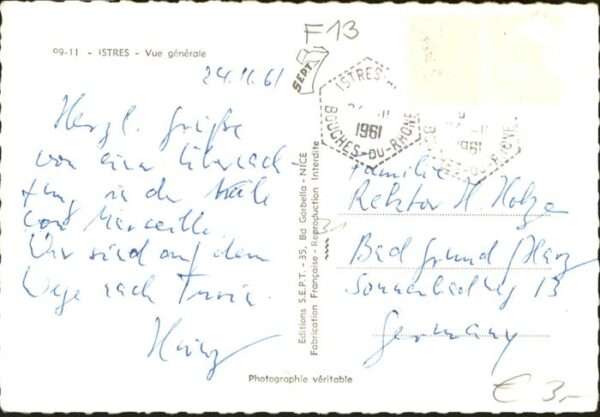 F13
09-11 - ISTRES - Vue générale
24.11.61
SEPT
ISTRES
24 -11
1961
BOUCHES-DU-RHÔNE
-11
1961
Herzl. Grüße
von einer Übernach-
tung in der Nähe
von Marseille.
Wir sind auf dem
Wege nach
Heinz
Editions S.E.P.T. - 35, Bd Gorbella - NICE
Fabrication Française - Reproduction Interdite
Familie
Rektor H. Holze
Bad Grund /Harz
13
Germany
Photographie véritable
€ 3,-